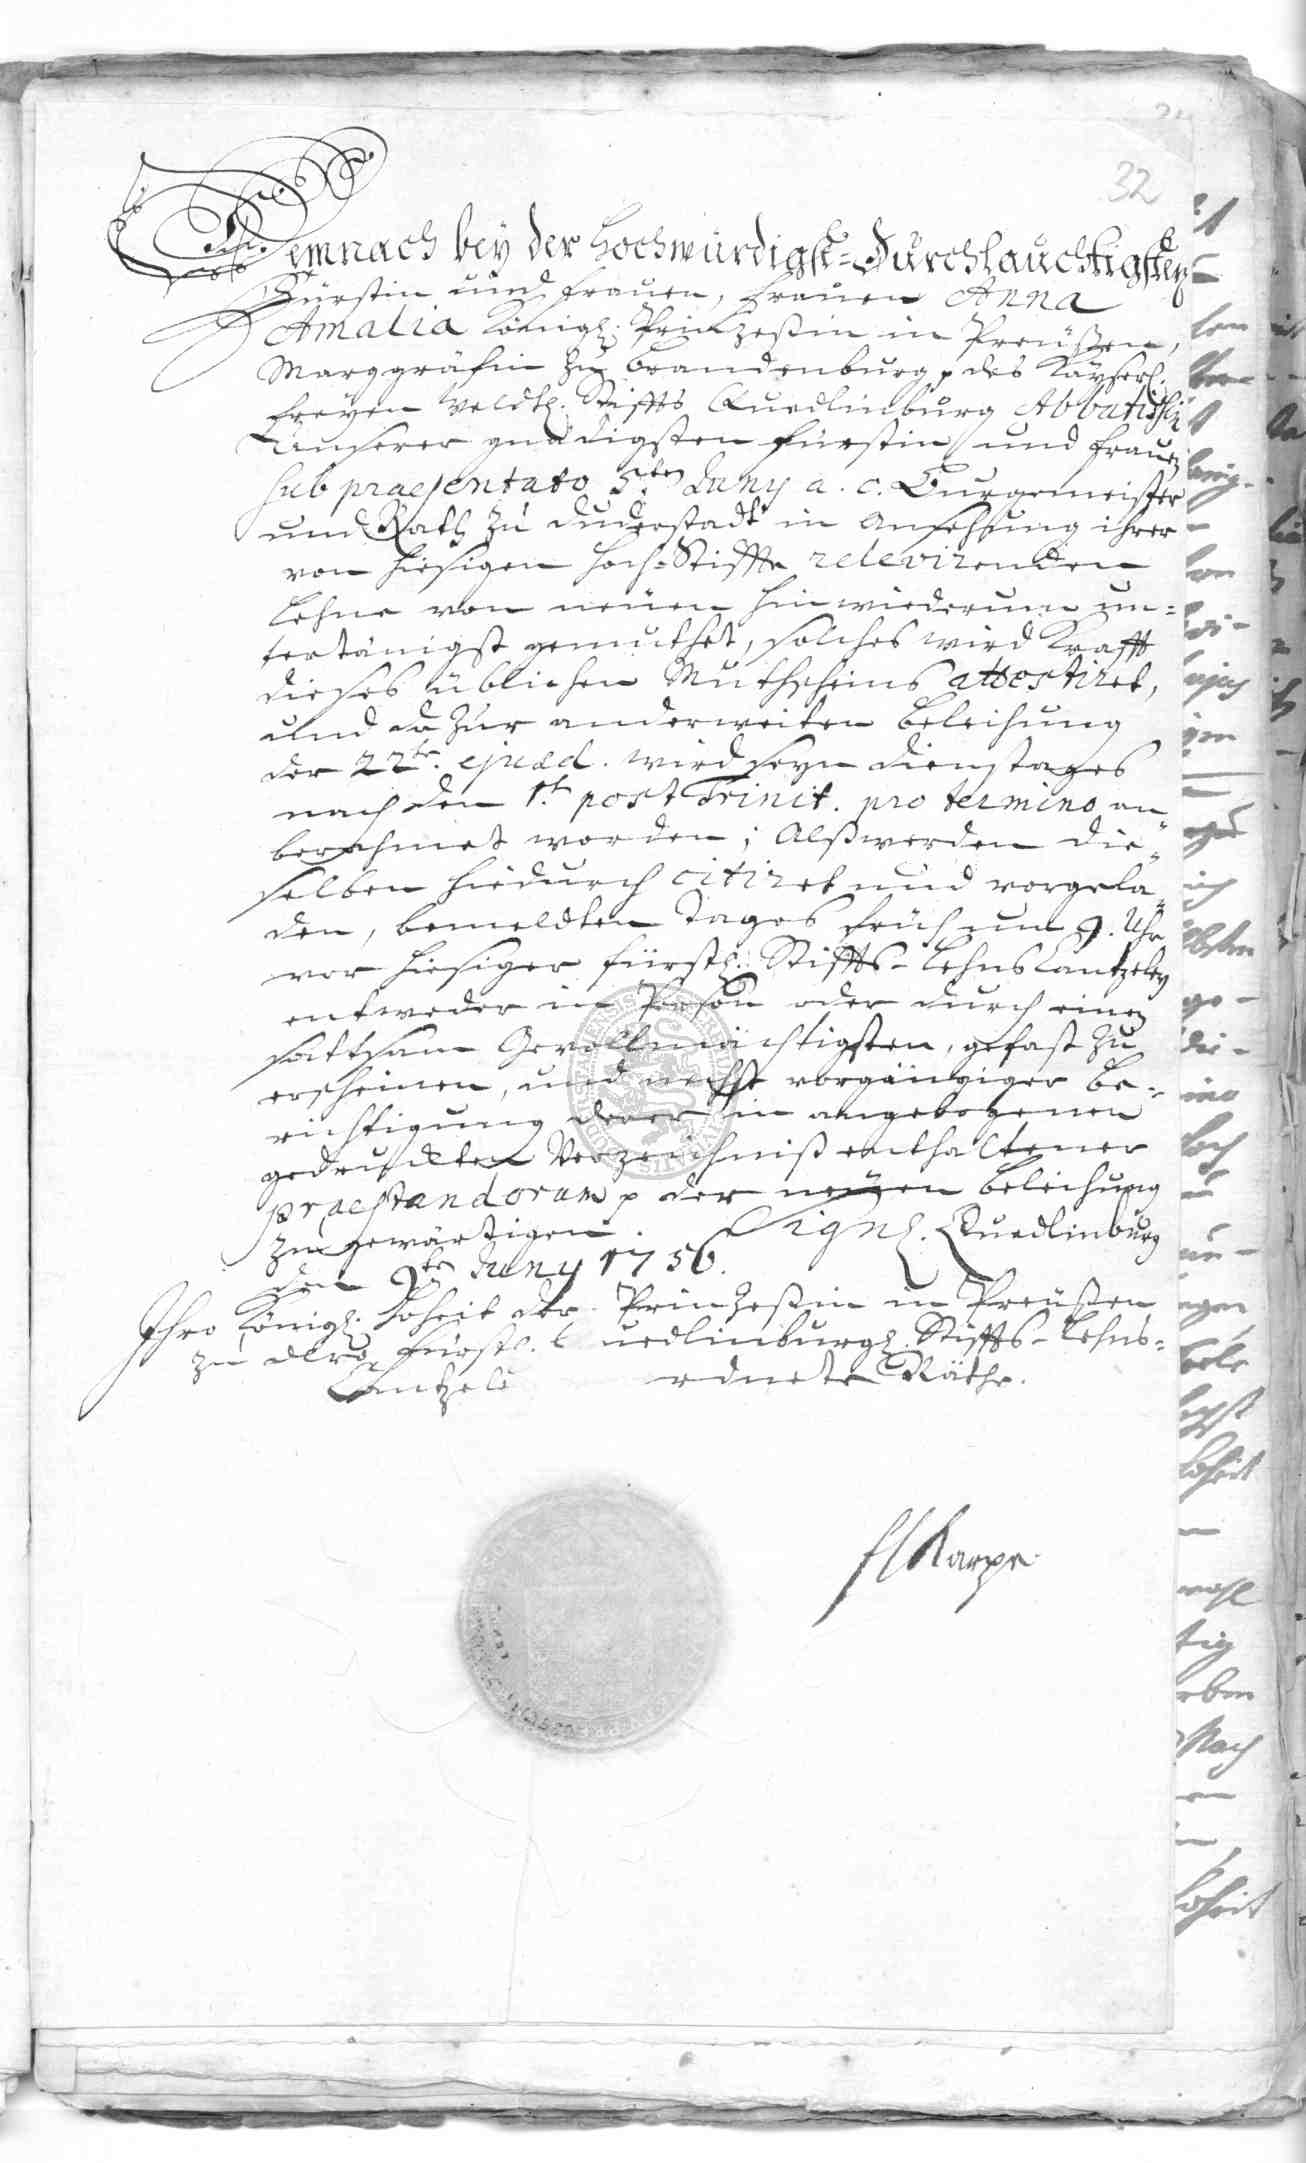 32
Demnach bey der Hochwürdigst-Durchlauchtigsten
Fürstin und Frauen, Frauen Anna
Amalia Königl. Prinzeßin in Preußen,
Marggräfin zu Brandenburg p des Käyserl.
Freyen Weldtl. Stiffts Quedlinburg Abbatißin
Unserer gnädigsten Fürstin und Frauen
sub praesentato 5ten Juny a. c. Burgemeister
und Rath zu Duderstadt in Ansehung ihrer
von hiesigen Hoch-Stiffte relevirenden
Lehne von neuen hinwiederum un-
tertänigst gemuthet, solches wird Krafft
dieses üblichen Muthscheins attestiret,
und da zur anderweiten Beleihung
der 22te. ejusd. wird seyn Dienstages
nach den 1t. post Trinit. pro termino an
berahmet worden; Alß werden die-
selben hiedurch citiret und vorgela-
den, bemeldten Tages früh um 9. Uhr
vor hiesiger Fürstl. Stiffts-Lehns Cantzeley
entweder in Person oder durch einen
sattsam Gevollmächtigsten, gefast zu
erscheinen, und nechst vorgängiger Be-
richtigung derer in angebogenen
gedruckten Verzeichniß enthaltener
praestandorum p der neüen Beleihung
zu gewärtigen. Signl. Quedlinburg
den 9ten Juny 1756.
Ihro Königl. Hoheit der Prinzeßin in Preußen
zu dero Fürstl. uedlinburgl. Stiffts-Lehns-
Cantzele rdnete Räthe.